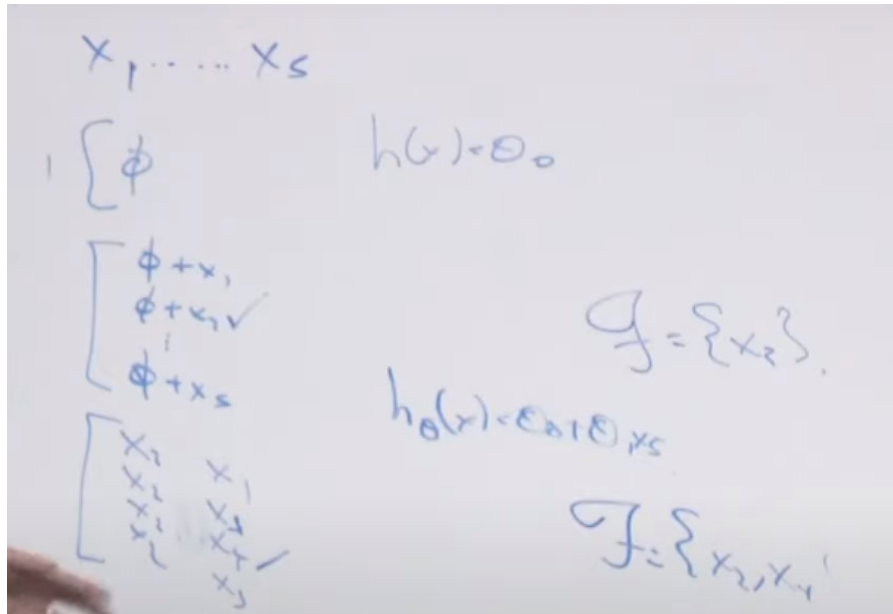 x₁ ..... x₅
1 [ ϕ
h(x) = θ₀
ϕ + x₁
ϕ + x₂ ✓
⋮
ϕ + x₅
F = {x₂}.
h_θ(x) = θ₀ + θ₁x₅
x₂ x₁
x₂ x₃
x₂ x₄ ✓
x₂ x₅
F = {x₂, x₄